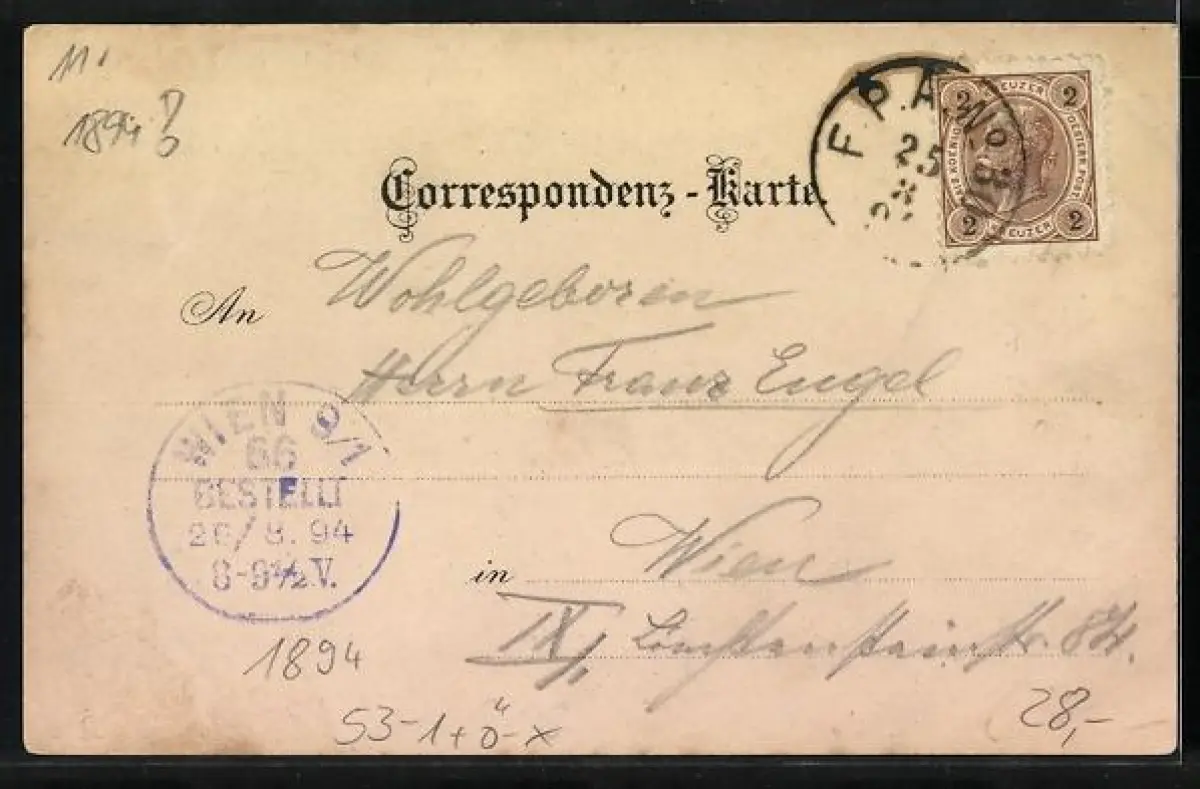 11.
1894?
F.P.A. No 3
25
8
Correspondenz-Karte.
2 KREUZER 2
OESTERR. POST
2 KREUZER 2
An Wohlgeboren
Herrn Franz Engel
WIEN 9/1
66
BESTELLT
26/8.94
8-9½V.
in Wien
IX/1
1894
S3-1+Ö-X
28,-